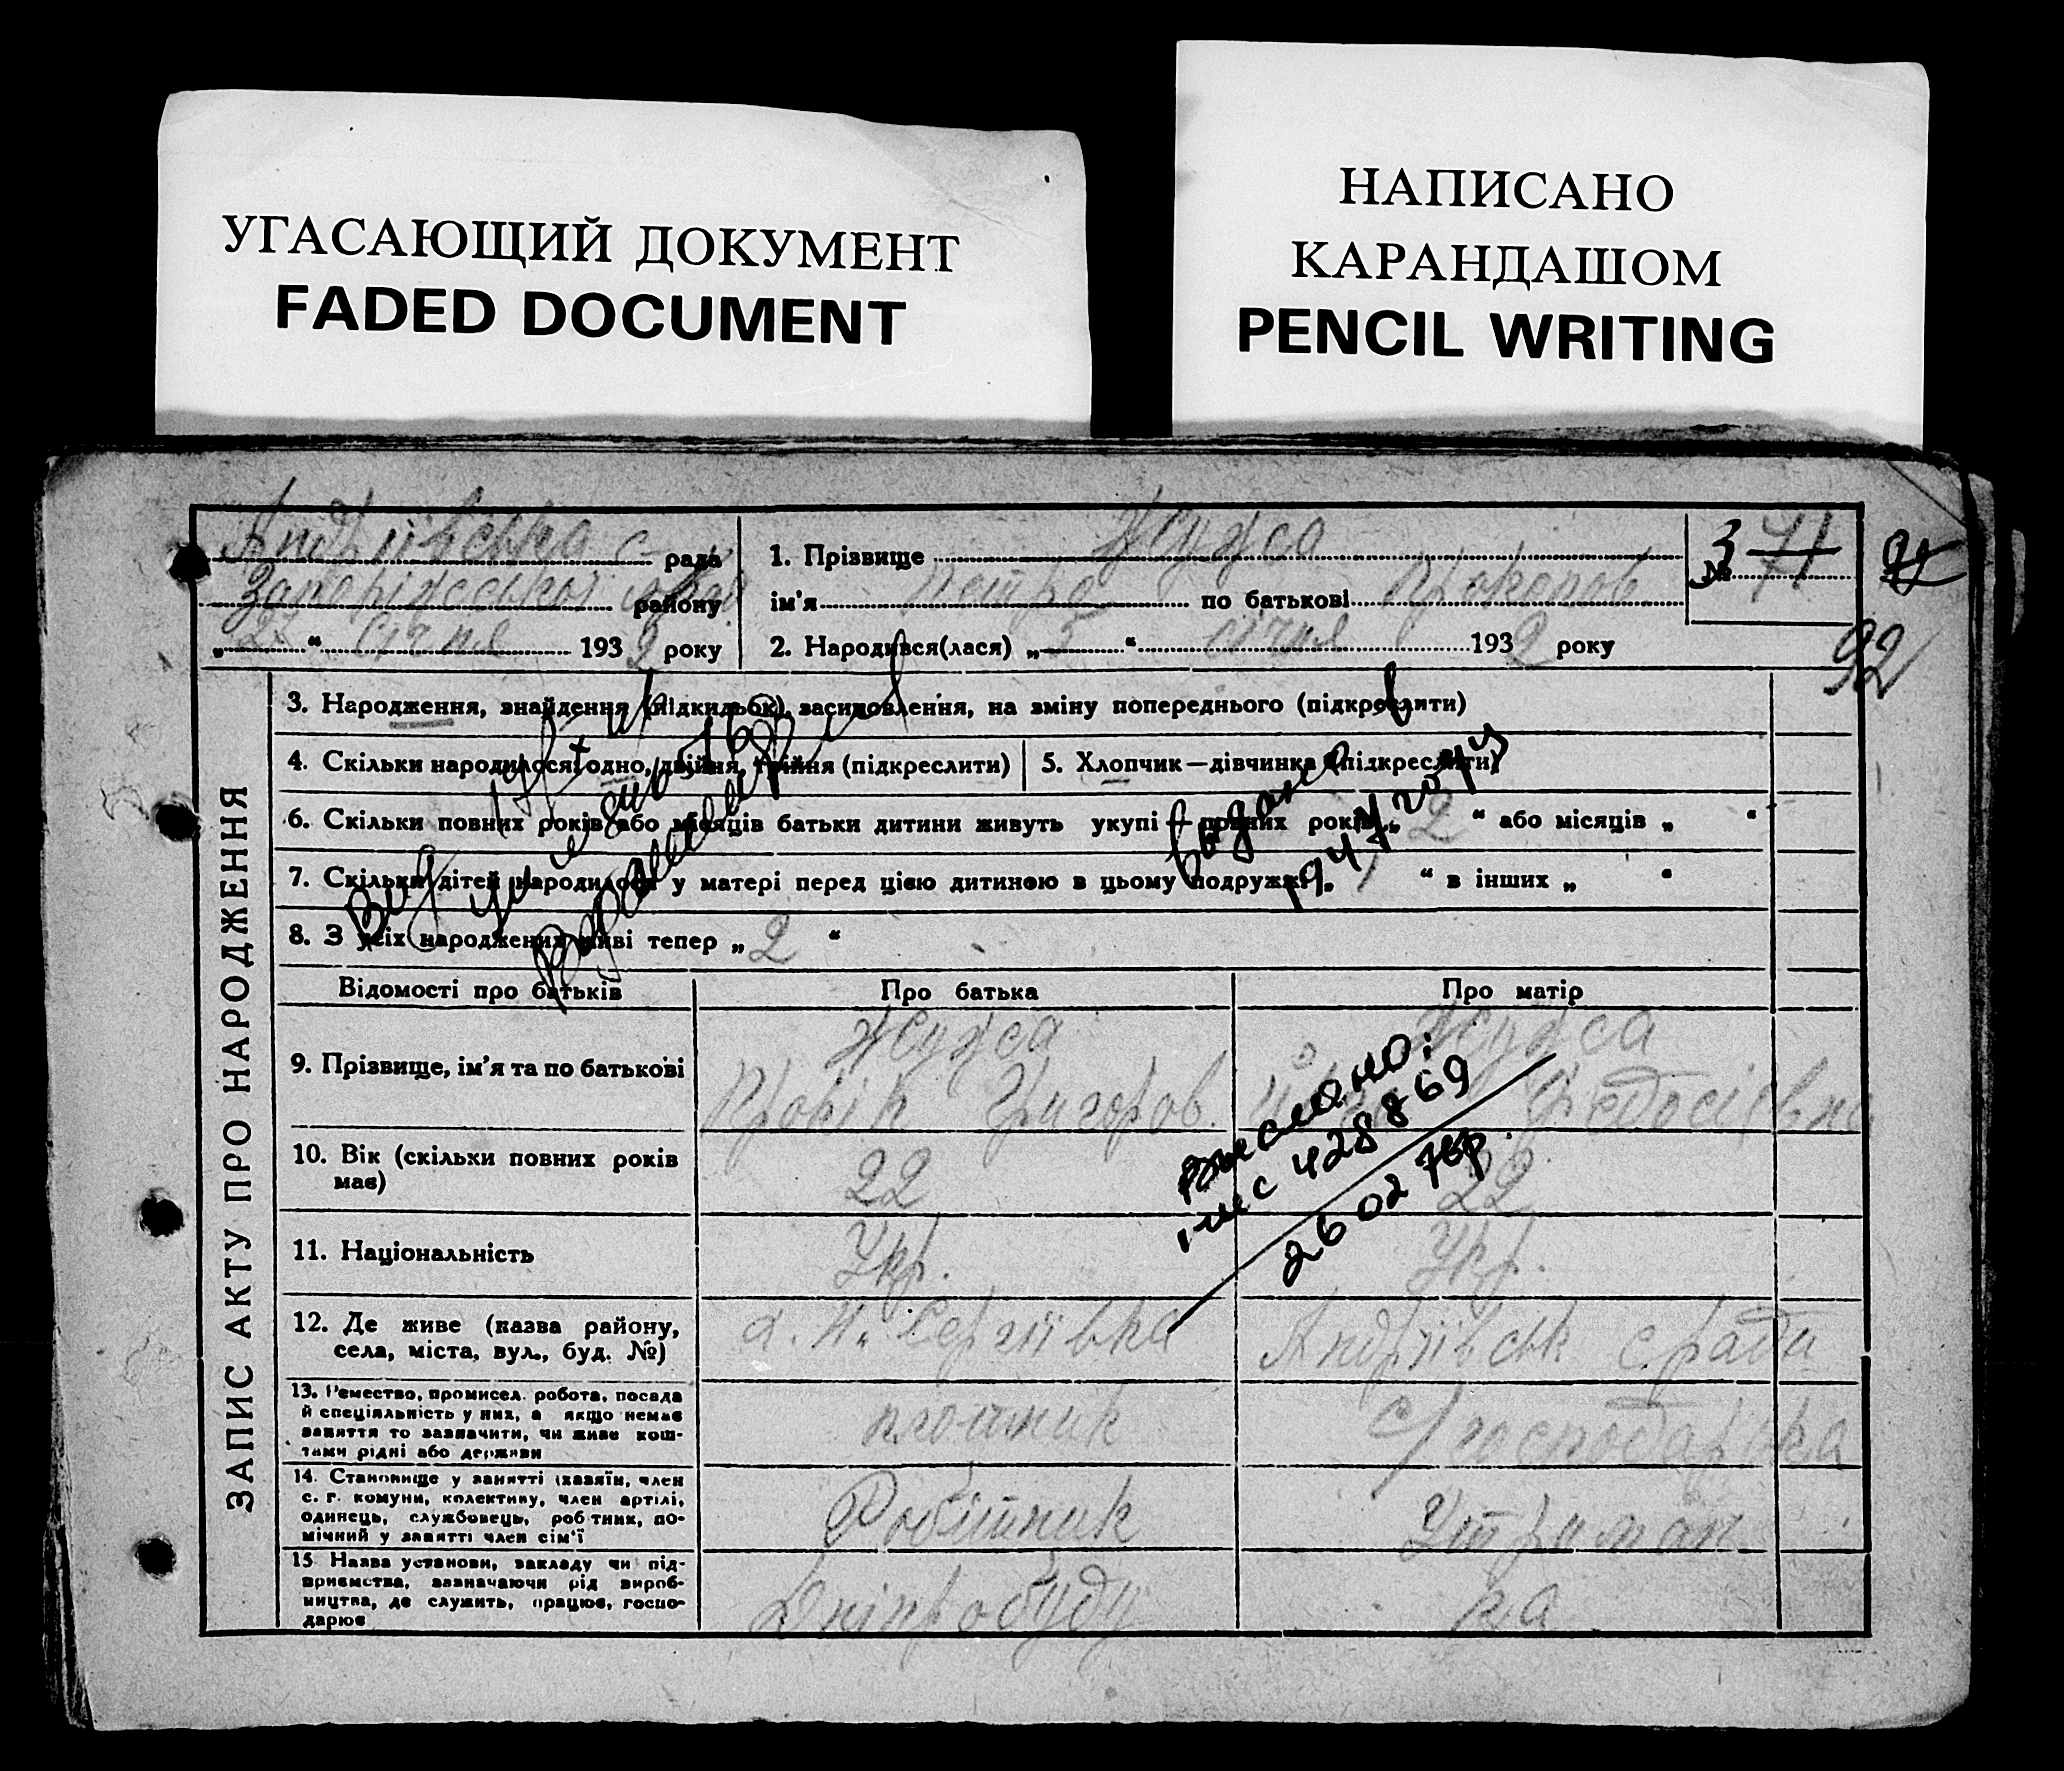 УГАСАЮЩИЙ ДОКУМЕНТ
FADED DOCUMENT
НАПИСАНО
КАРАНДАШОМ
PENCIL WRITING
Андріївська с рада
Запорізької району
„27“ Січня 1932 року
1. Прізвище
ім'я Петро по батькові Прокопов
2. Народився(лася) „5“ січня 1932 року
№ 71
3
92
ЗАПИС АКТУ ПРО НАРОДЖЕННЯ
3. Народження, знайдення (підкидьок), засиновлення, на зміну попереднього (підкреслити)
4. Скільки народилося: одно, двійня, трійня (підкреслити)
5. Хлопчик—дівчинка (підкреслити)
6. Скільки повних років або місяців батьки дитини живуть укупі — повних років „2“ або місяців „ “
7. Скільки дітей народилося у матері перед цією дитиною в цьому подружжі „1“ в інших „ “
8. З усіх народжених живі тепер „2“
1947 году
Відомості про батьків
Про батька
Про матір
9. Прізвище, ім'я та по батькові
Прокіп Григоров.
Федосіївна
428869
26 02 76р
10. Вік (скільки повних років має)
22
22
11. Національність
Укр.
Укр.
12. Де живе (назва району, села, міста, вул., буд. №)
Сергіївка
Андріївськ с/ради
13. Ремество, промисел, робота, посада й спеціяльність у них, а якщо немає заняття то зазначити, чи живе коштами рідні або держави
плотник
с/господарка
14. Становище у занятті (хазяїн, член с. г. комуни, колективу, член артілі, одинець, службовець, робітник, помічний у занятті член сім'ї
Робітник
Утриман
15 Назва установи, закладу чи підприємства, зазначаючи рід виробництва, де служить, працює, господарює
Дніпробуду
ка